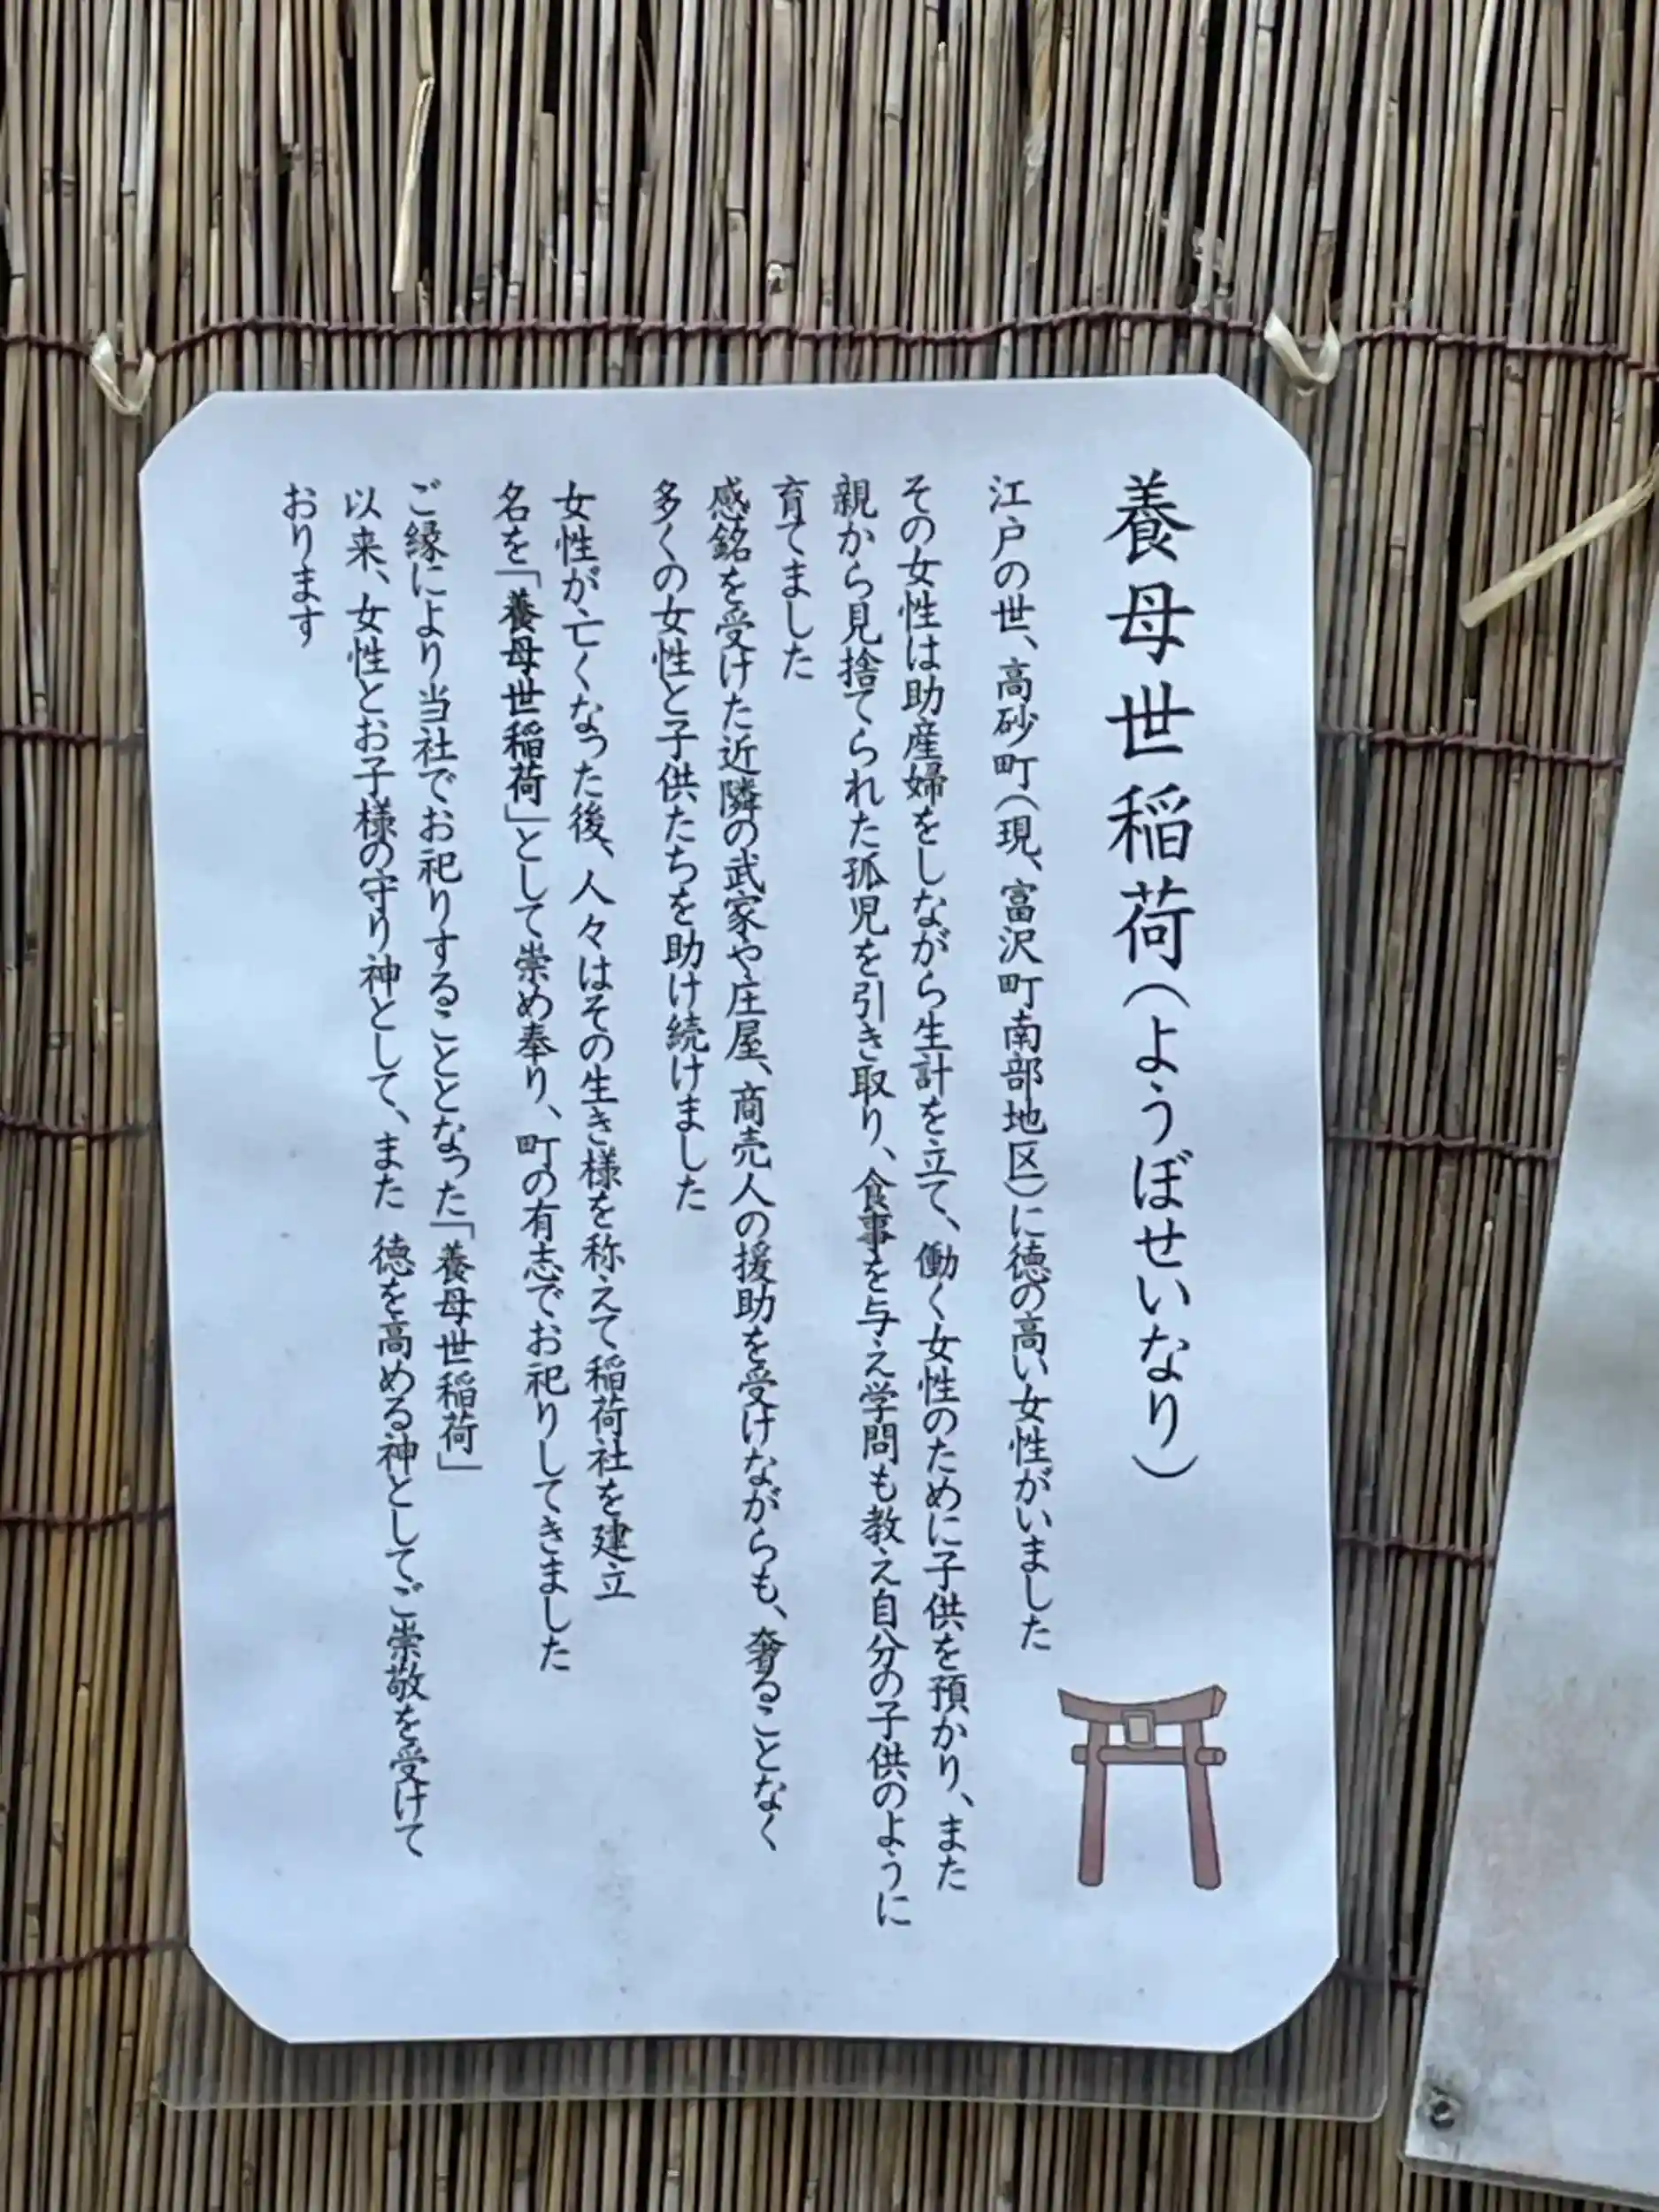 養母世稲荷（ようぼせいなり）
江戸の世、高砂町（現、富沢町南部地区）に徳の高い女性がいました
その女性は助産婦をしながら生計を立て、働く女性のために子供を預かり、また
親から見捨てられた孤児を引き取り、食事を与え学問も教え自分の子供のように
育てました
感銘を受けた近隣の武家や庄屋、商売人の援助を受けながらも、奢ることなく
多くの女性と子供たちを助け続けました
女性が亡くなった後、人々はその生き様を称えて稲荷社を建立
名を「養母世稲荷」として崇め奉り、町の有志でお祀りしてきました
ご縁により当社でお祀りすることとなった「養母世稲荷」
以来、女性とお子様の守り神として、また 徳を高める神としてご崇敬を受けて
おります